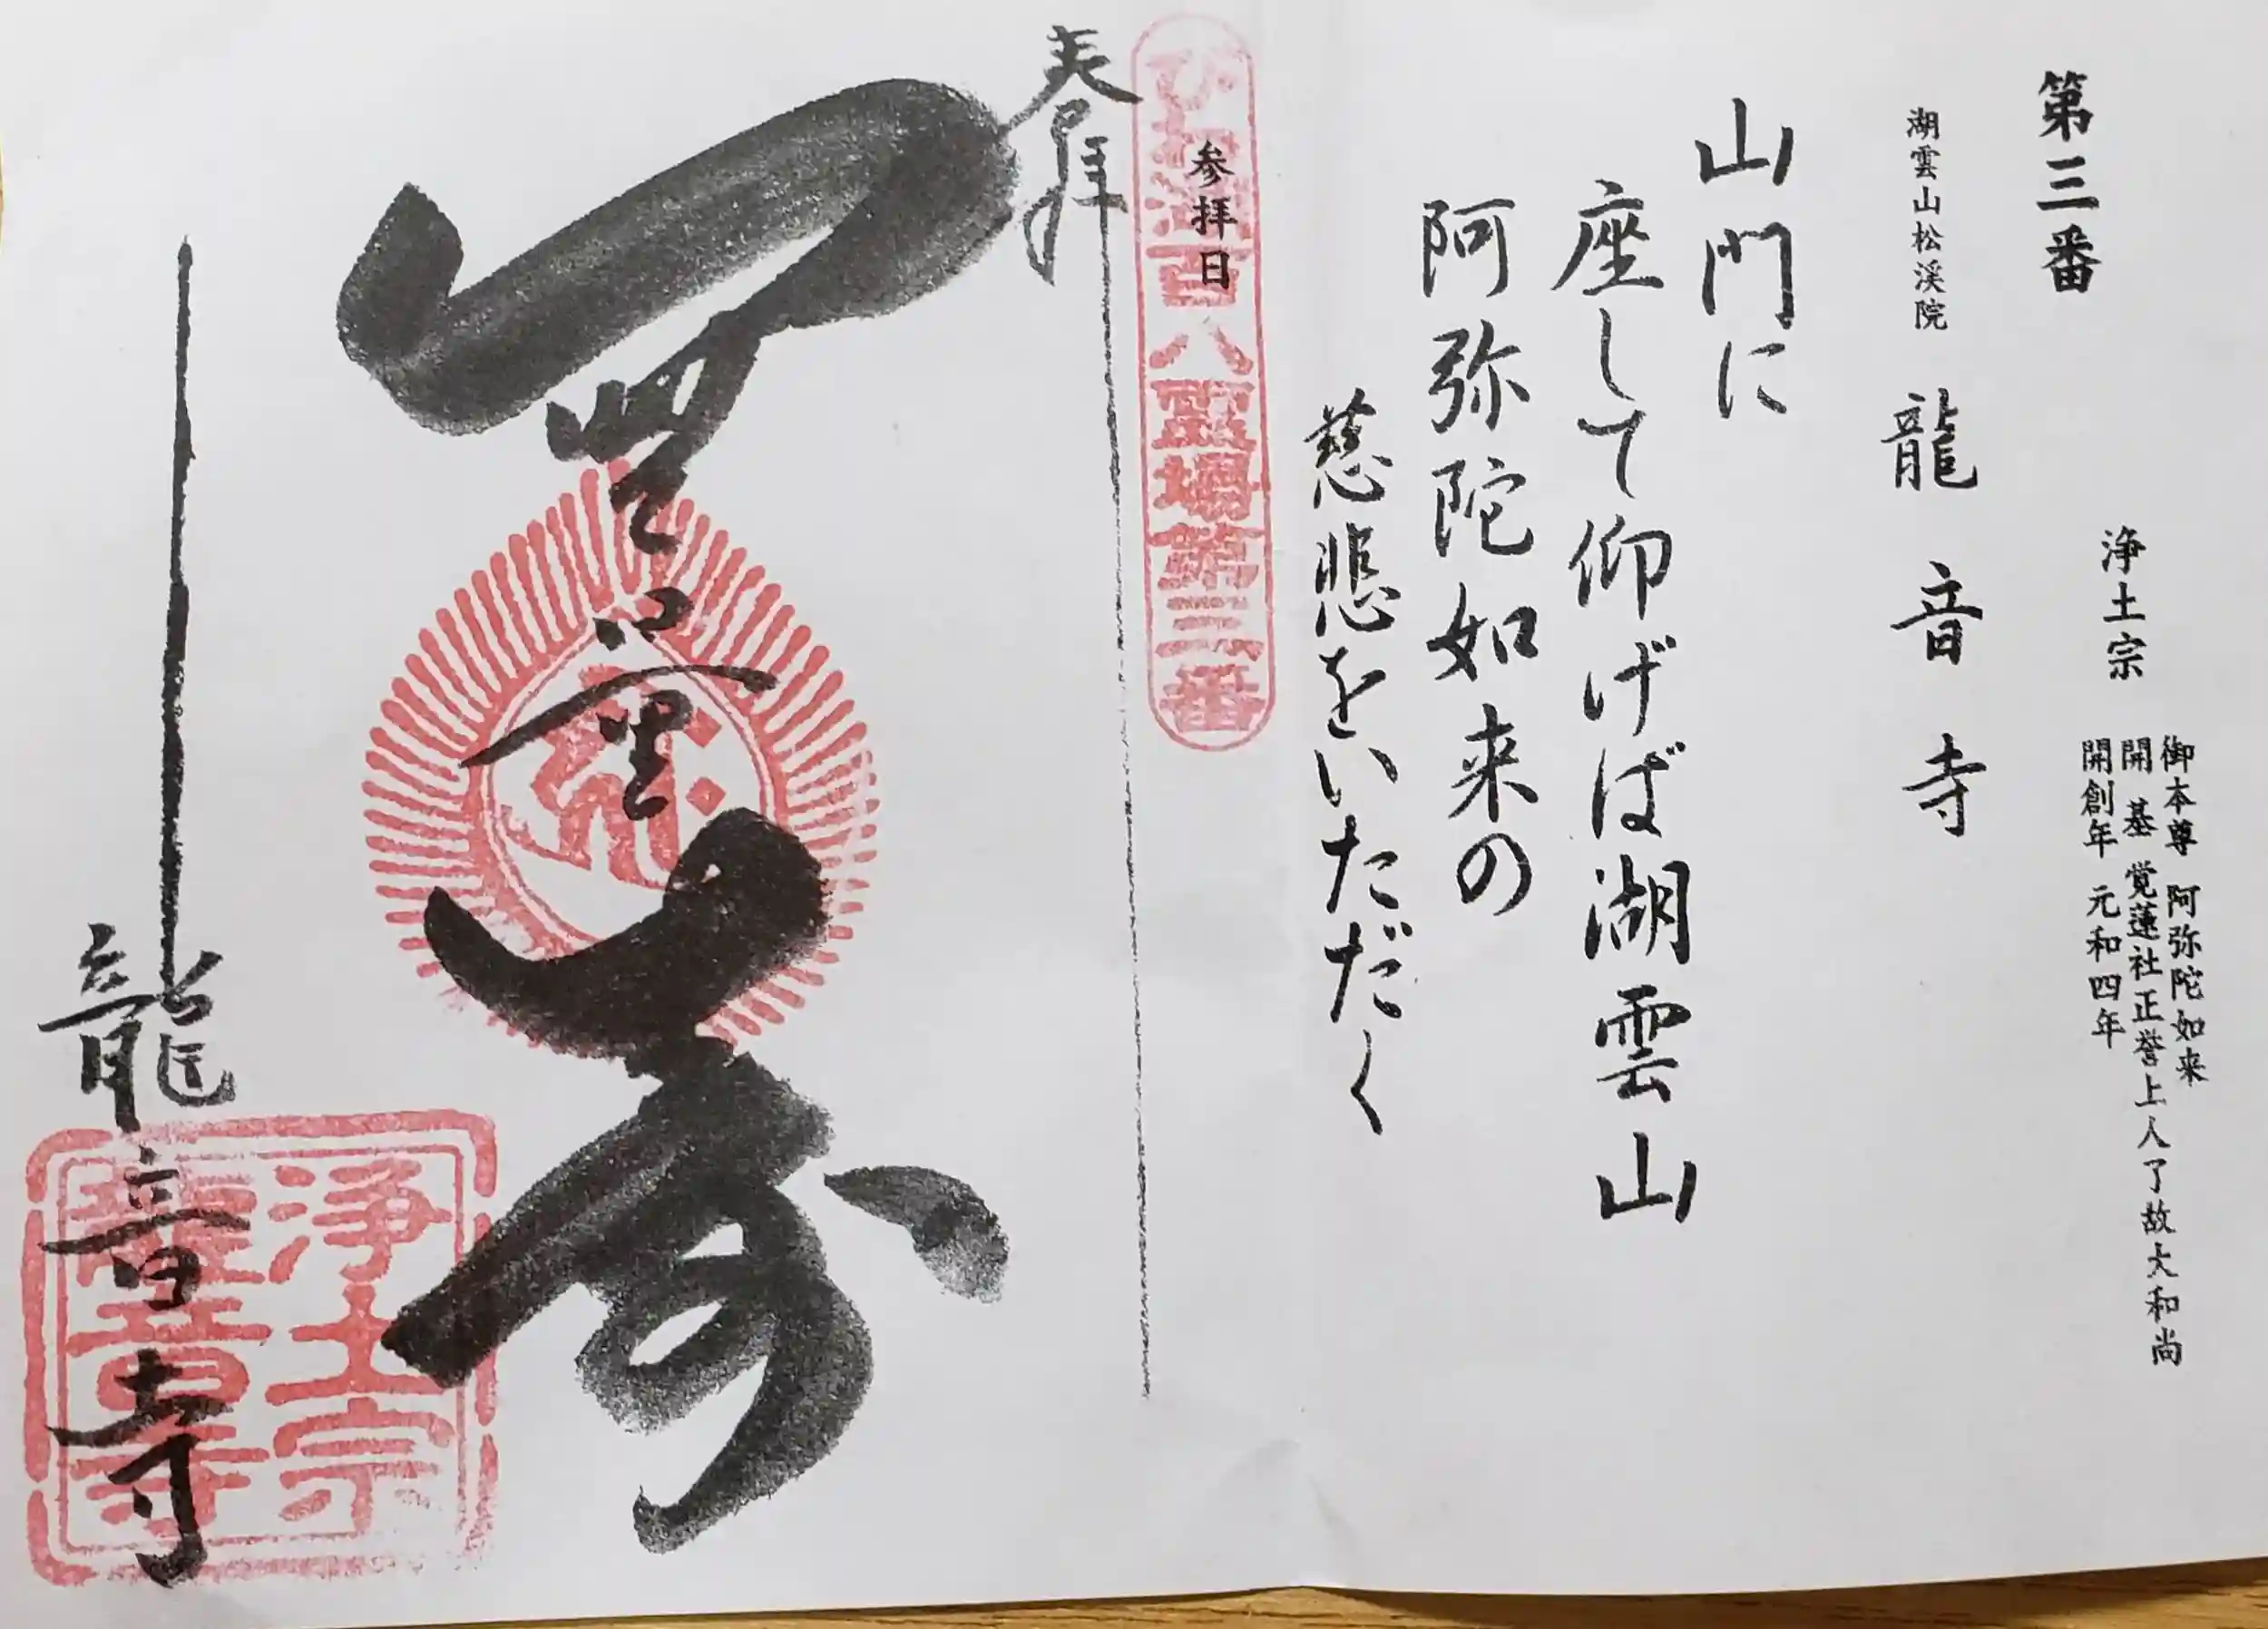 第三番
浄土宗
御本尊 阿弥陀如来
開 基 覚蓮社正誉上人了故大和尚
開創年 元和四年
湖雲山松渓院 龍音寺
山門に
座して仰げば湖雲山
阿弥陀如来の
慈悲をいただく
びわ湖百八霊場第三番
参拝日
奉拝
無量寿
龍音寺
浄土宗
龍音寺